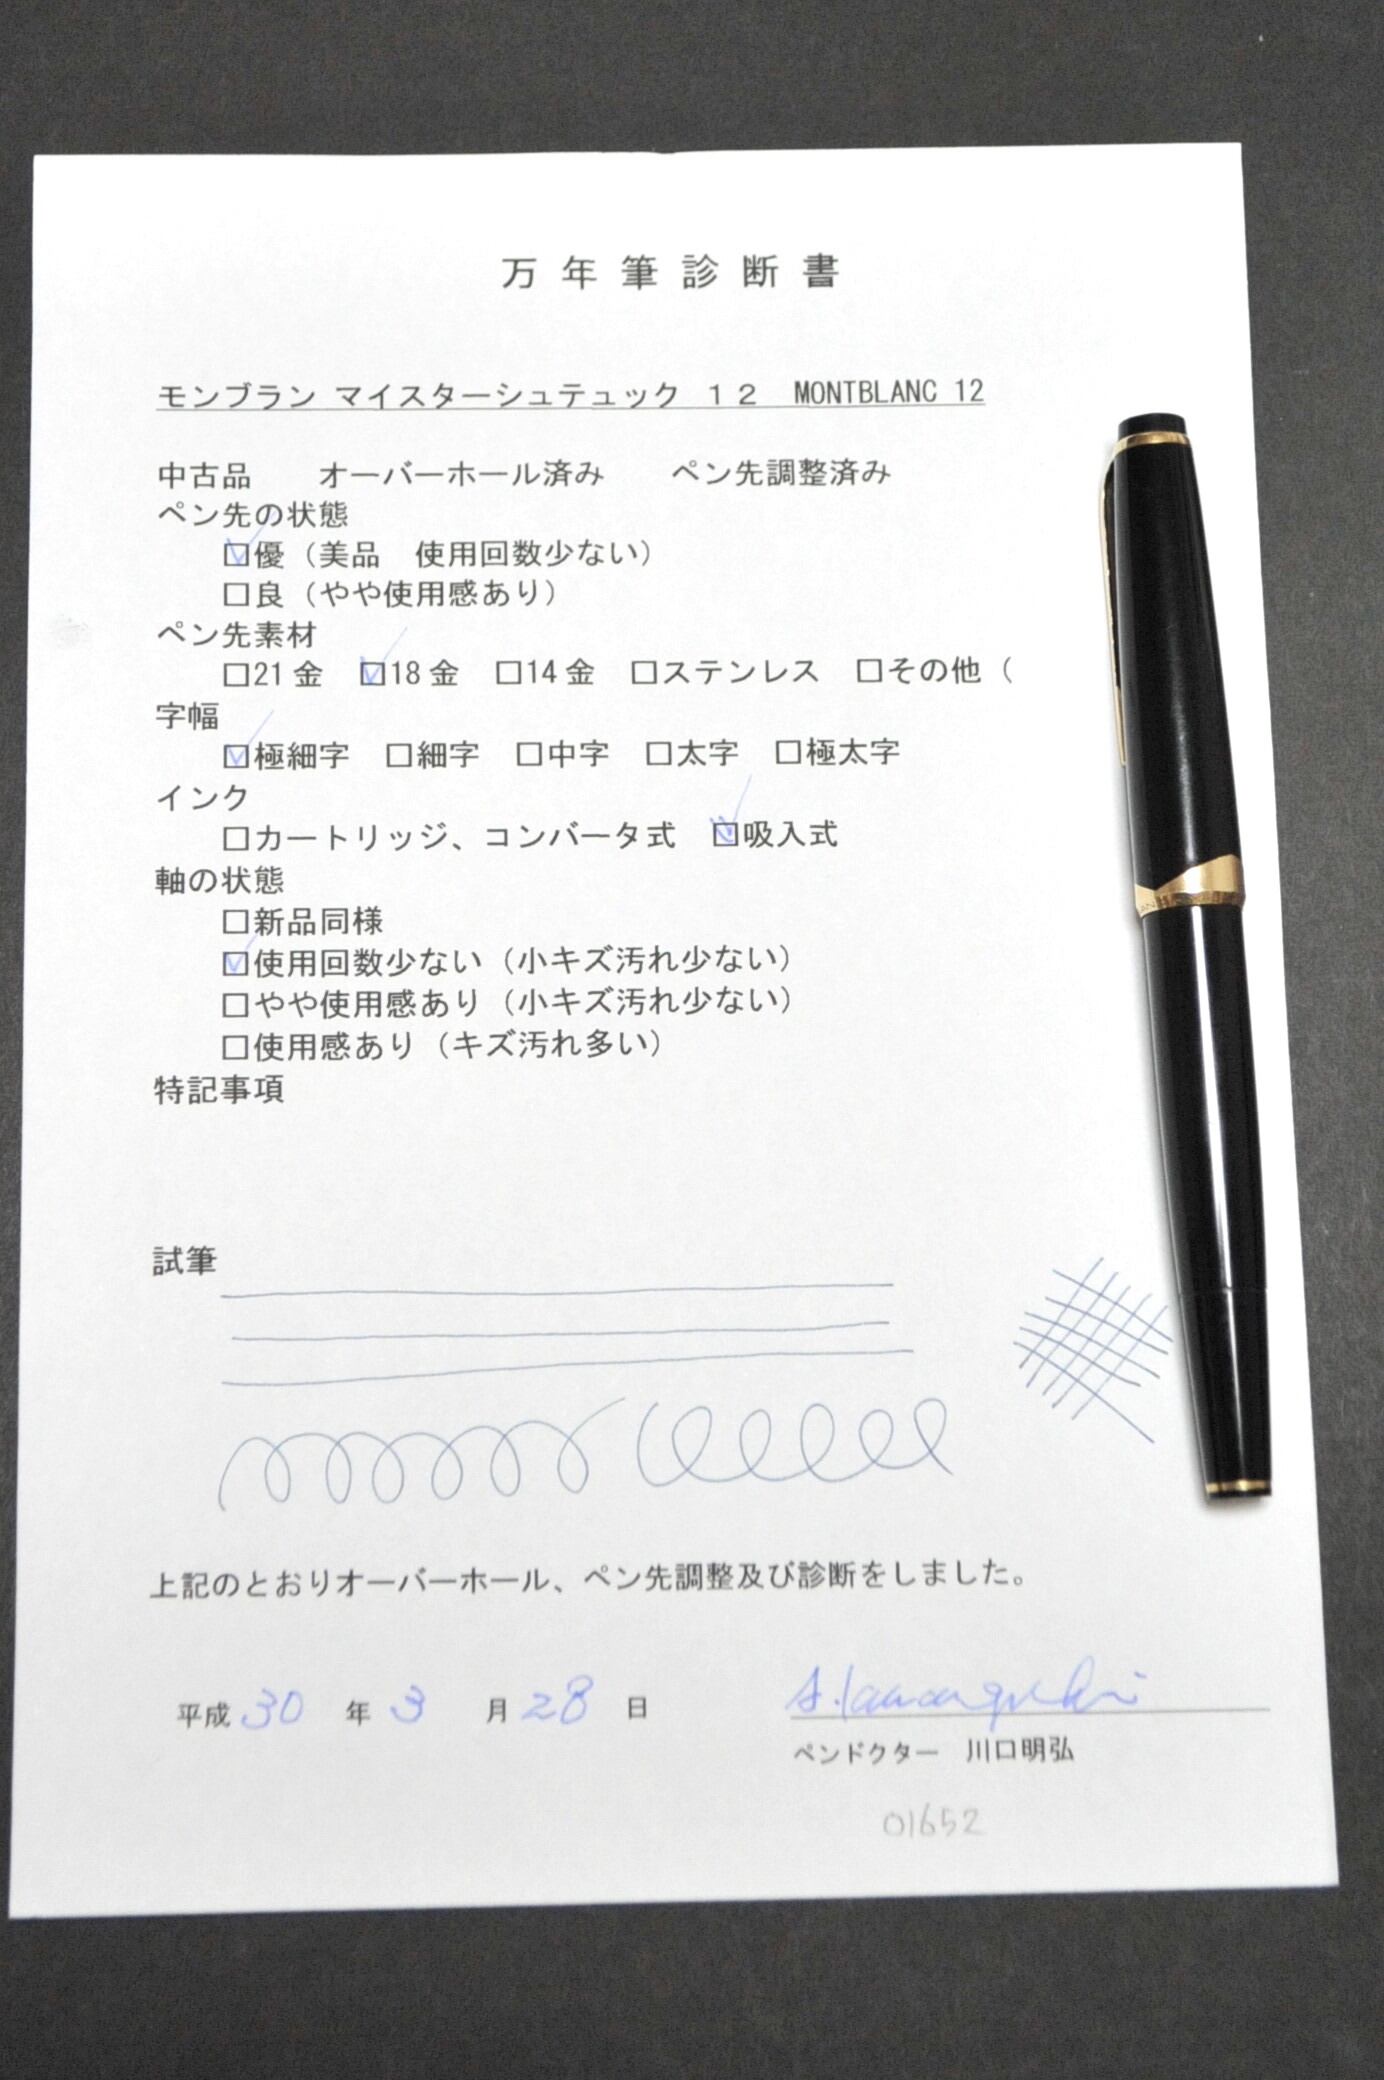 万年筆診断書
モンブラン マイスターシュテュック １２ MONTBLANC 12
中古品 オーバーホール済み ペン先調整済み
ペン先の状態
☑優（美品 使用回数少ない）
□良（やや使用感あり）
ペン先素材
□21金 ☑18金 □14金 □ステンレス □その他（
字幅
☑極細字 □細字 □中字 □太字 □極太字
インク
□カートリッジ、コンバータ式 ☑吸入式
軸の状態
□新品同様
☑使用回数少ない（小キズ汚れ少ない）
□やや使用感あり（小キズ汚れ少ない）
□使用感あり（キズ汚れ多い）
特記事項
試筆
上記のとおりオーバーホール、ペン先調整及び診断をしました。
平成 30 年 3 月 28 日
ペンドクター 川口明弘
01652